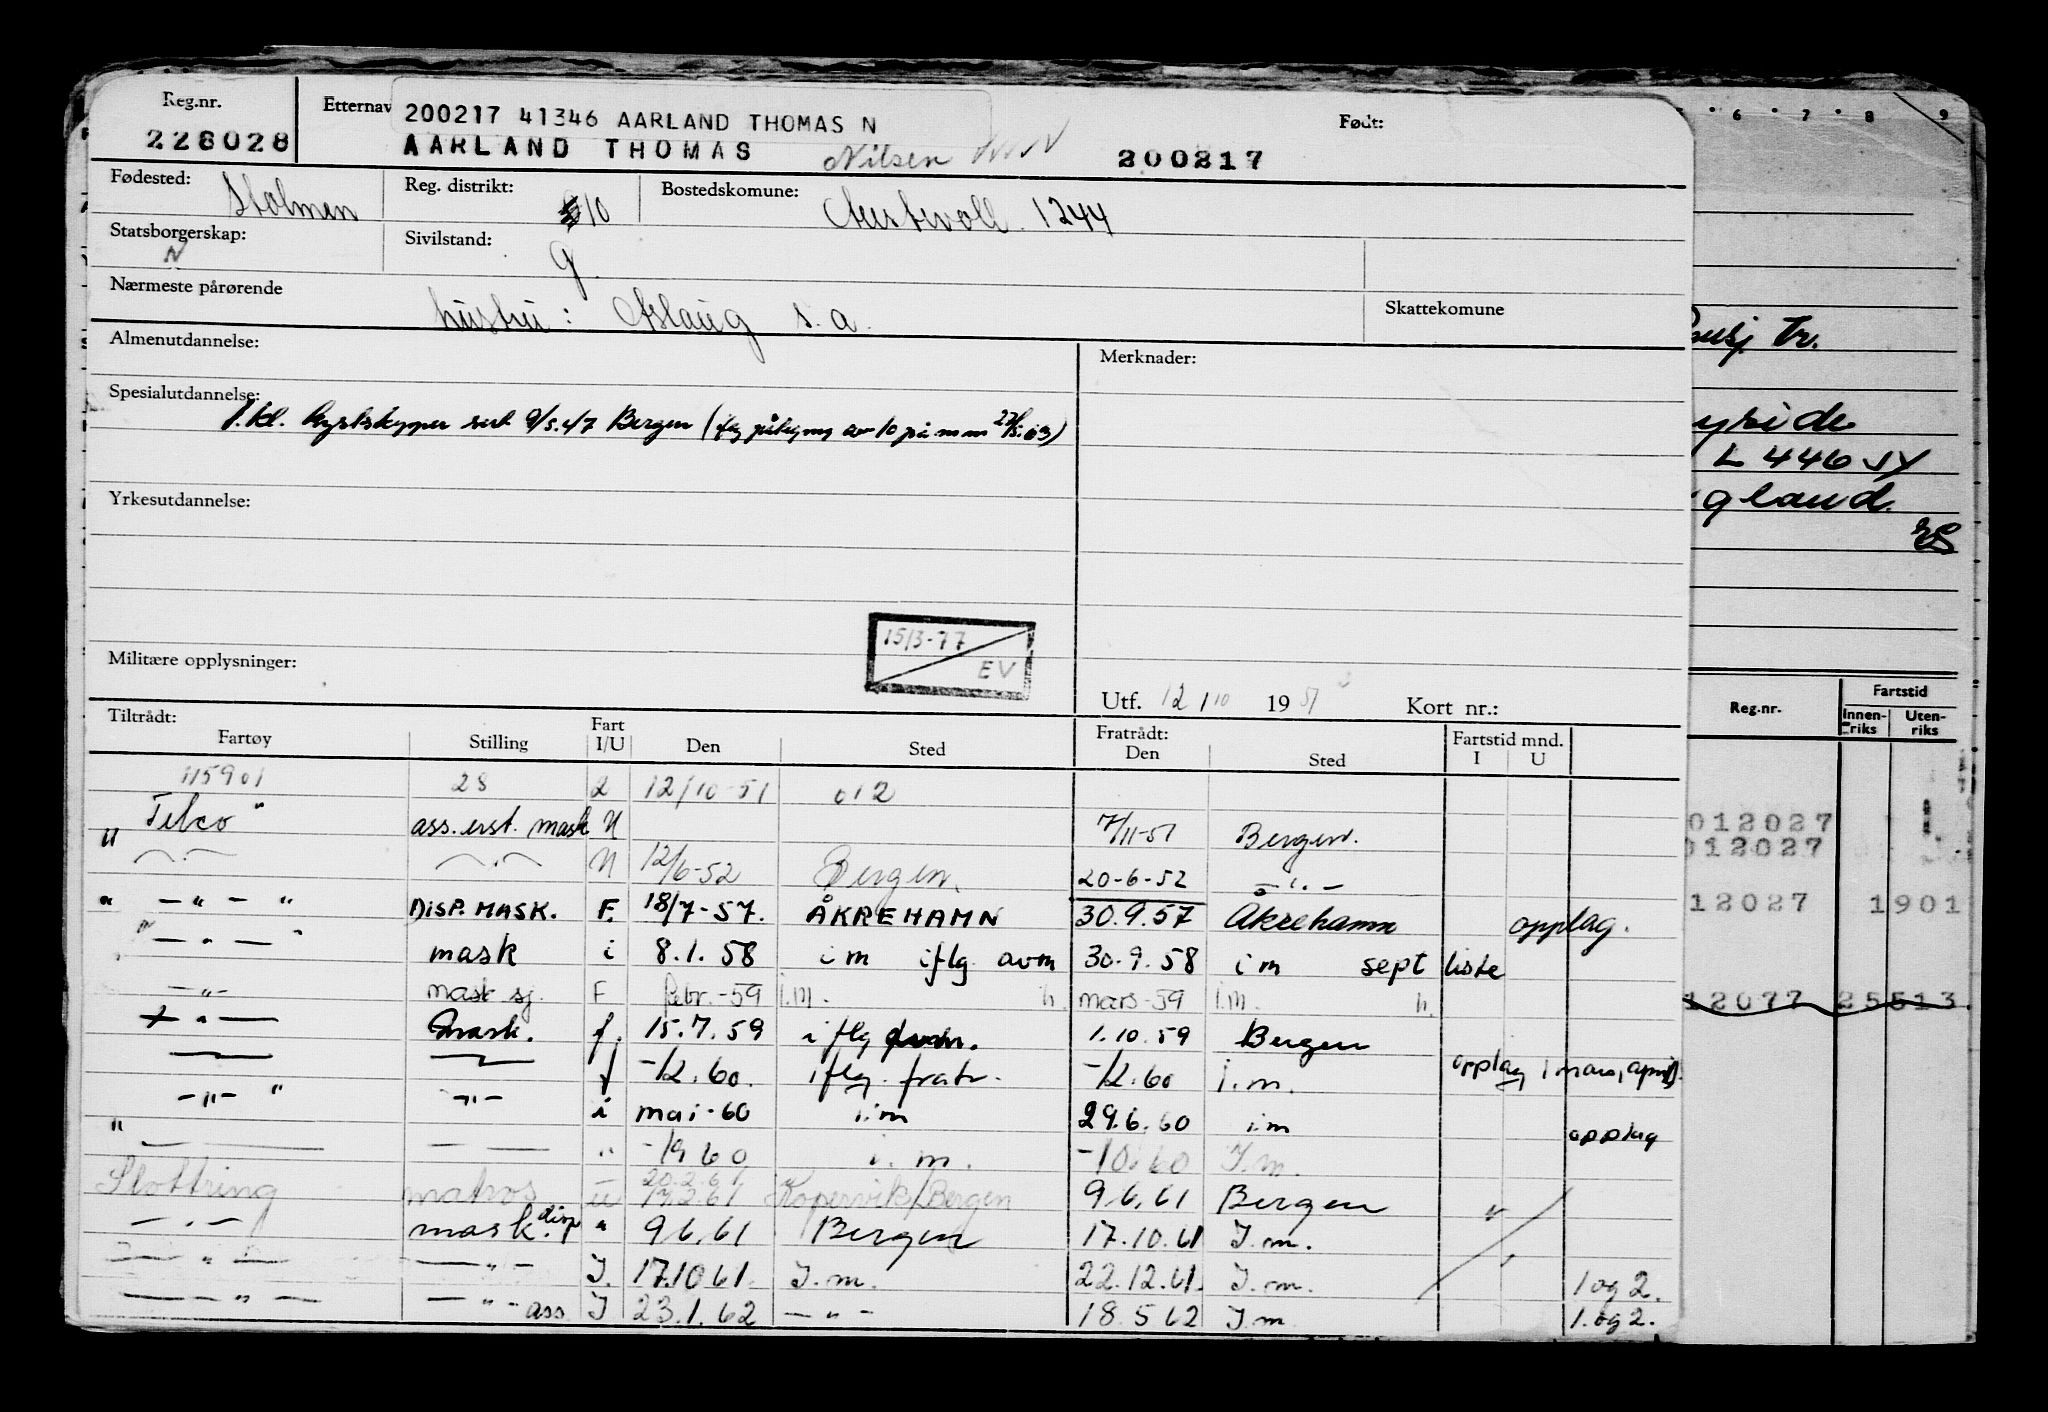 Reg.nr. Etternav 200217 41346 AARLAND THOMAS N Født:
228028 AARLAND THOMAS Nilsen 200217
Fødested: Stolmen Reg. distrikt: 10 Bostedskomune: Austevoll 1244
Statsborgerskap: N Sivilstand: g.
Nærmeste pårørende hustru: Aslaug s.a. Skattekomune
Almenutdannelse: Merknader:
Spesialutdannelse:
1. kl. kystskipper sert 9/5.47 Bergen
Yrkesutdannelse:
15/3-77
EV
Militære opplysninger:
Utf. 12/10 1951 Kort nr.:
Tiltrådt: Fratrådt:
Fartøy Stilling Fart I/U Den Sted Den Sted Fartstid mnd. I U
115901 2S 2 12/10-51 012
"Telco" ass. erst. mask U 7/11-51 Bergen.
U 12/6-52 Bergen. 20-6-52 - " -
" - " - " DISP. MASK. F. 18/7-57. ÅKREHAMN 30.9.57 Åkrehamn opplag.
" - " - " mask i 8.1.58 i m iflg avm 30.9.58 i m sept liste
- " - mask sj. F febr.-59 i.m. h. mars-59 i.m. h.
- " - mask. f. 15.7.59 iflg 1.10.59 Bergen
f -/2.60. iflg. fratr. -/2.60 i.m. opplag i mars, april.
- " - " - " - i mai-60 i.m 29.6.60 i.m opplag
" " -/9 60 i. m. -10.60 I.m.
Slottring matros u 20.2.61 17.2.61 Kopervik/Bergen 9.6.61 Bergen
- " - mask. disp " 9.6.61 Bergen 17.10.61 I.m.
- " - - " - I. 17.10 61. I.m. 22.12.61. I.m. 1 og 2.
- " - - " - ass I 23.1.62 - " - 18.5 62 I.m 1. og 2.
6 7 8 9
tr.
L 446 JY
Reg.nr. Fartstid
Innenriks Utenriks
012027
012027
12027 1901
12077 25513